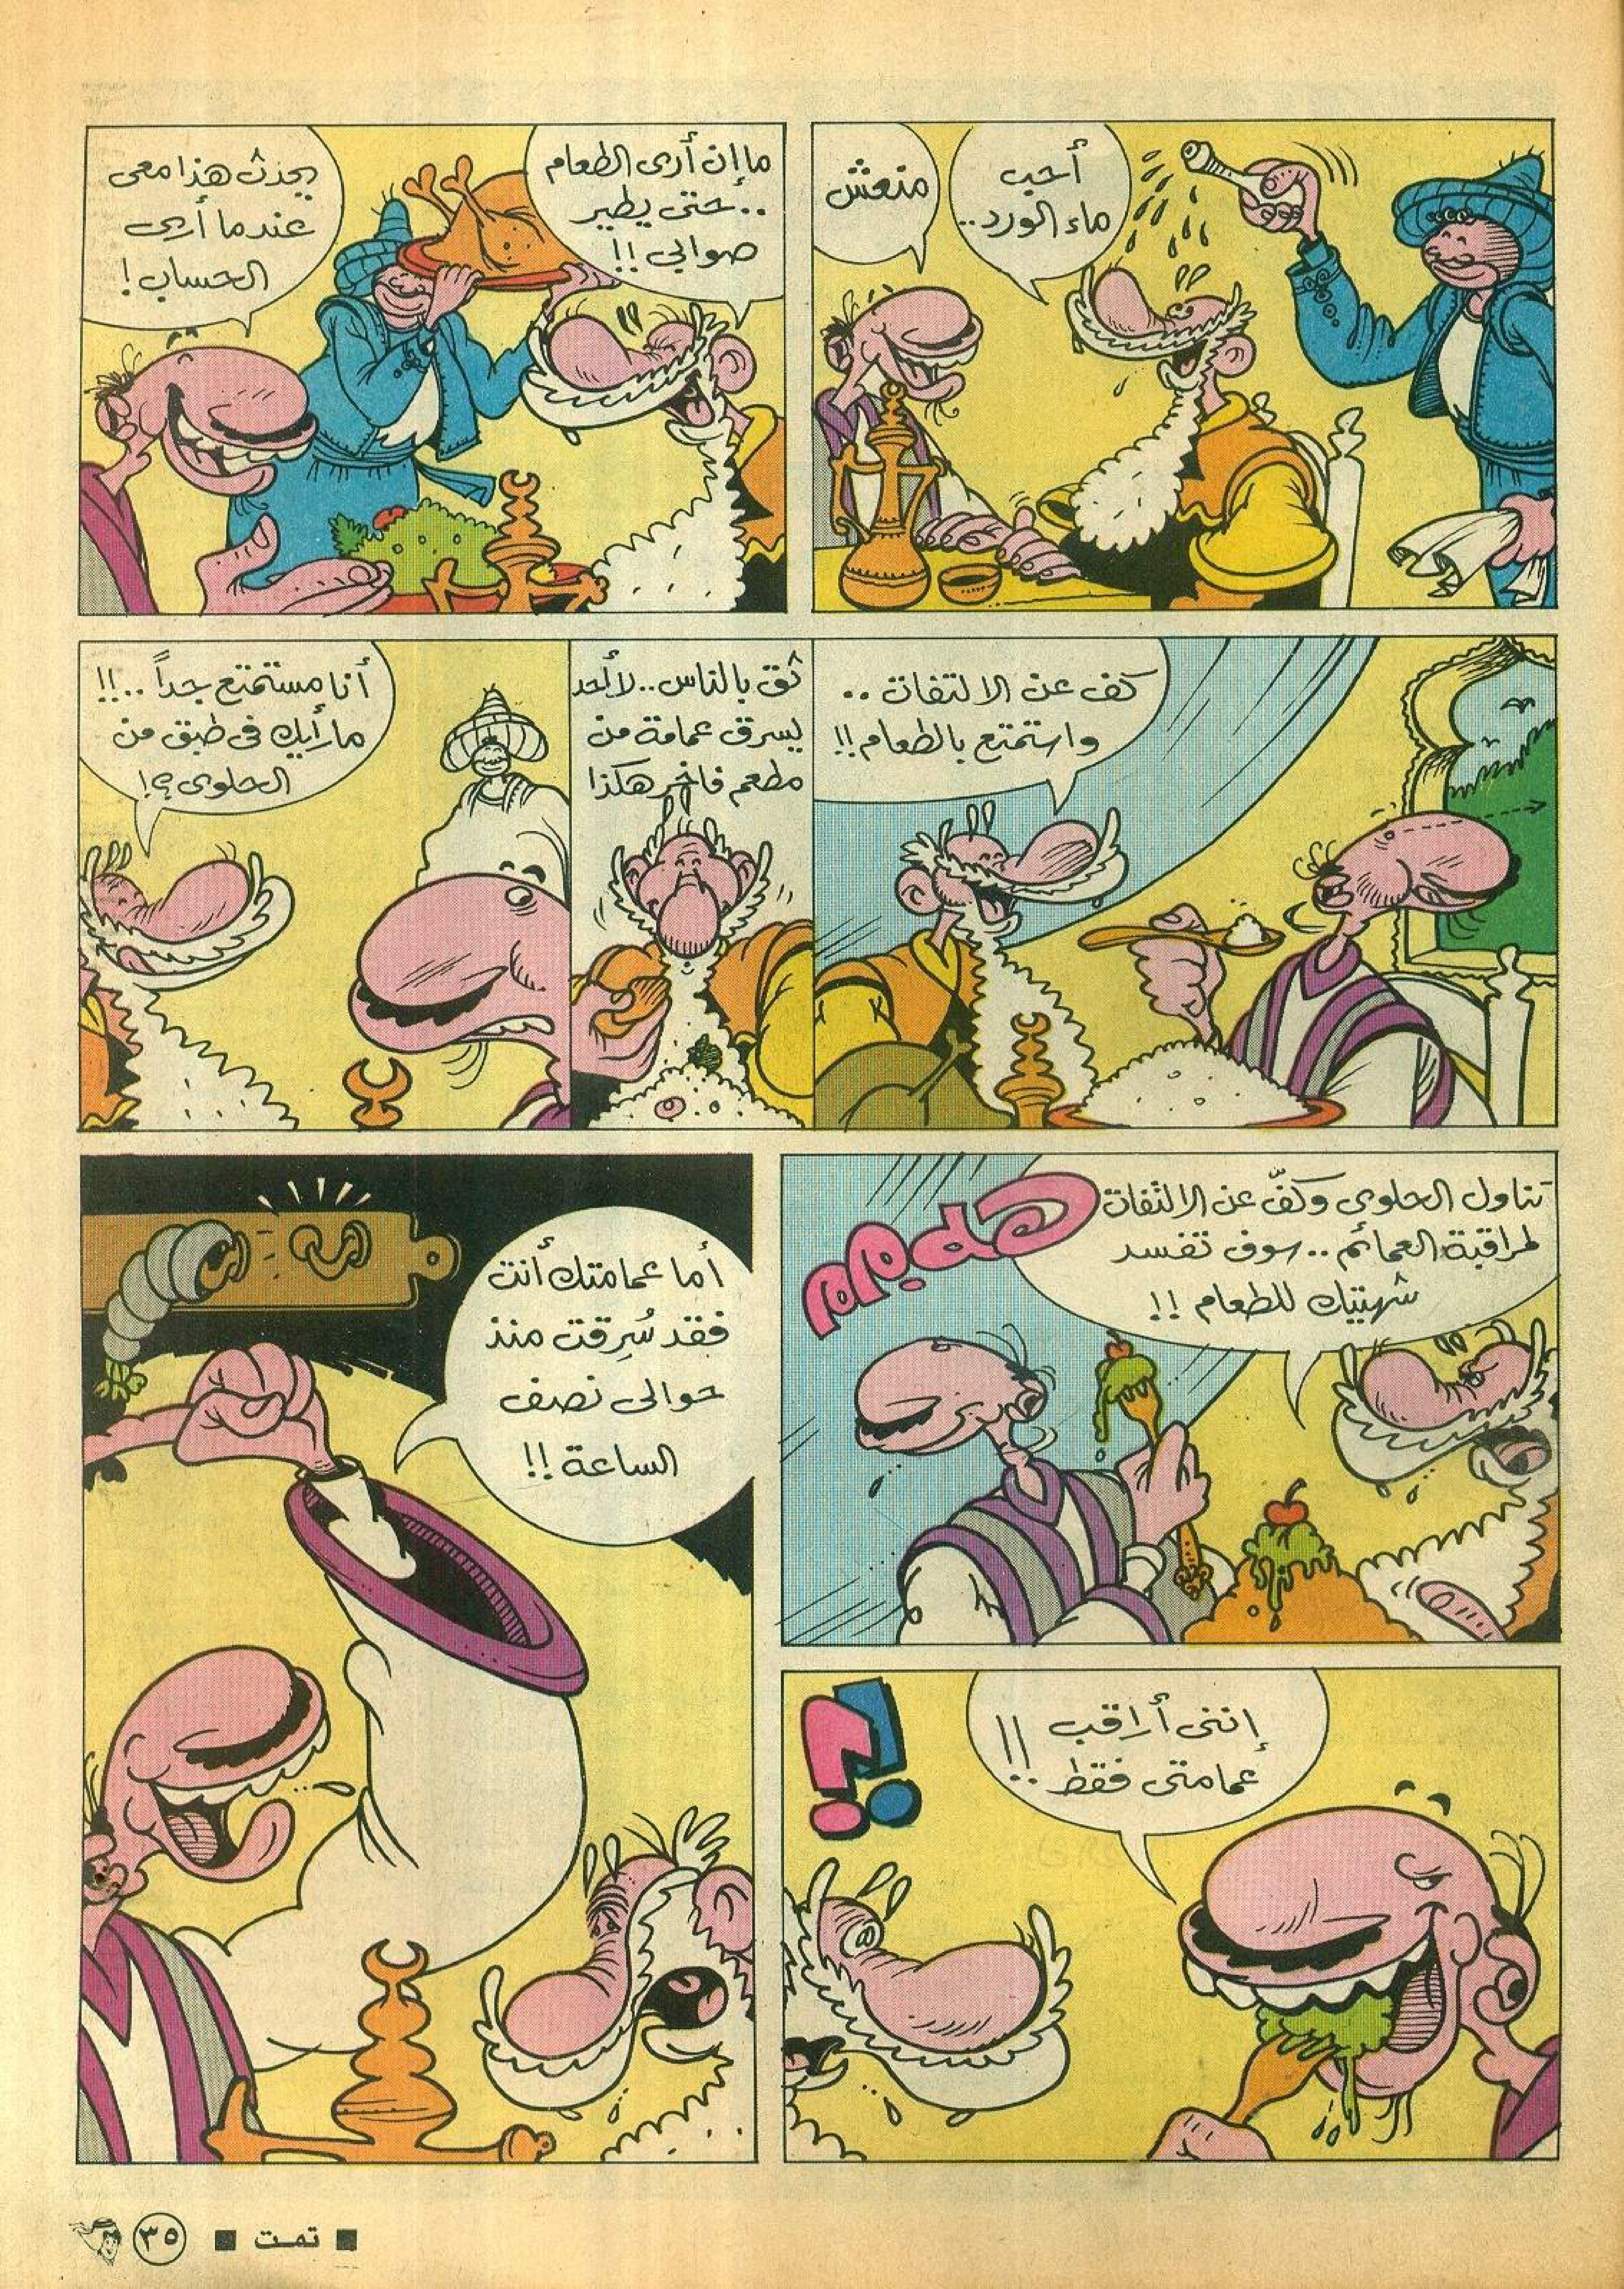 أحب
ماء الورد..
منعش
ما إن أرى الطعام
..حتى يطير
صوابي !!
يحدث هذا معى
عندما أرى
الحساب !
كف عن الالتفات ..
واستمتع بالطعام !!
ثق بالناس.. لا أحد
يسرق عمامة من
مطعم فاخر هكذا
أنا مستمتع جداً ..!!
ما رأيك فى طبق من
الحلوى ؟!
تناول الحلوى وكفّ عن الالتفات
لمراقبة العمائم .. سوف تفسد
شهيتك للطعام !!
إننى أراقب
عمامتى فقط !!
!؟
أما عمامتك أنت
فقد سُرِقت منذ
حوالى نصف
الساعة !!
■ تمت ■ ٣٥